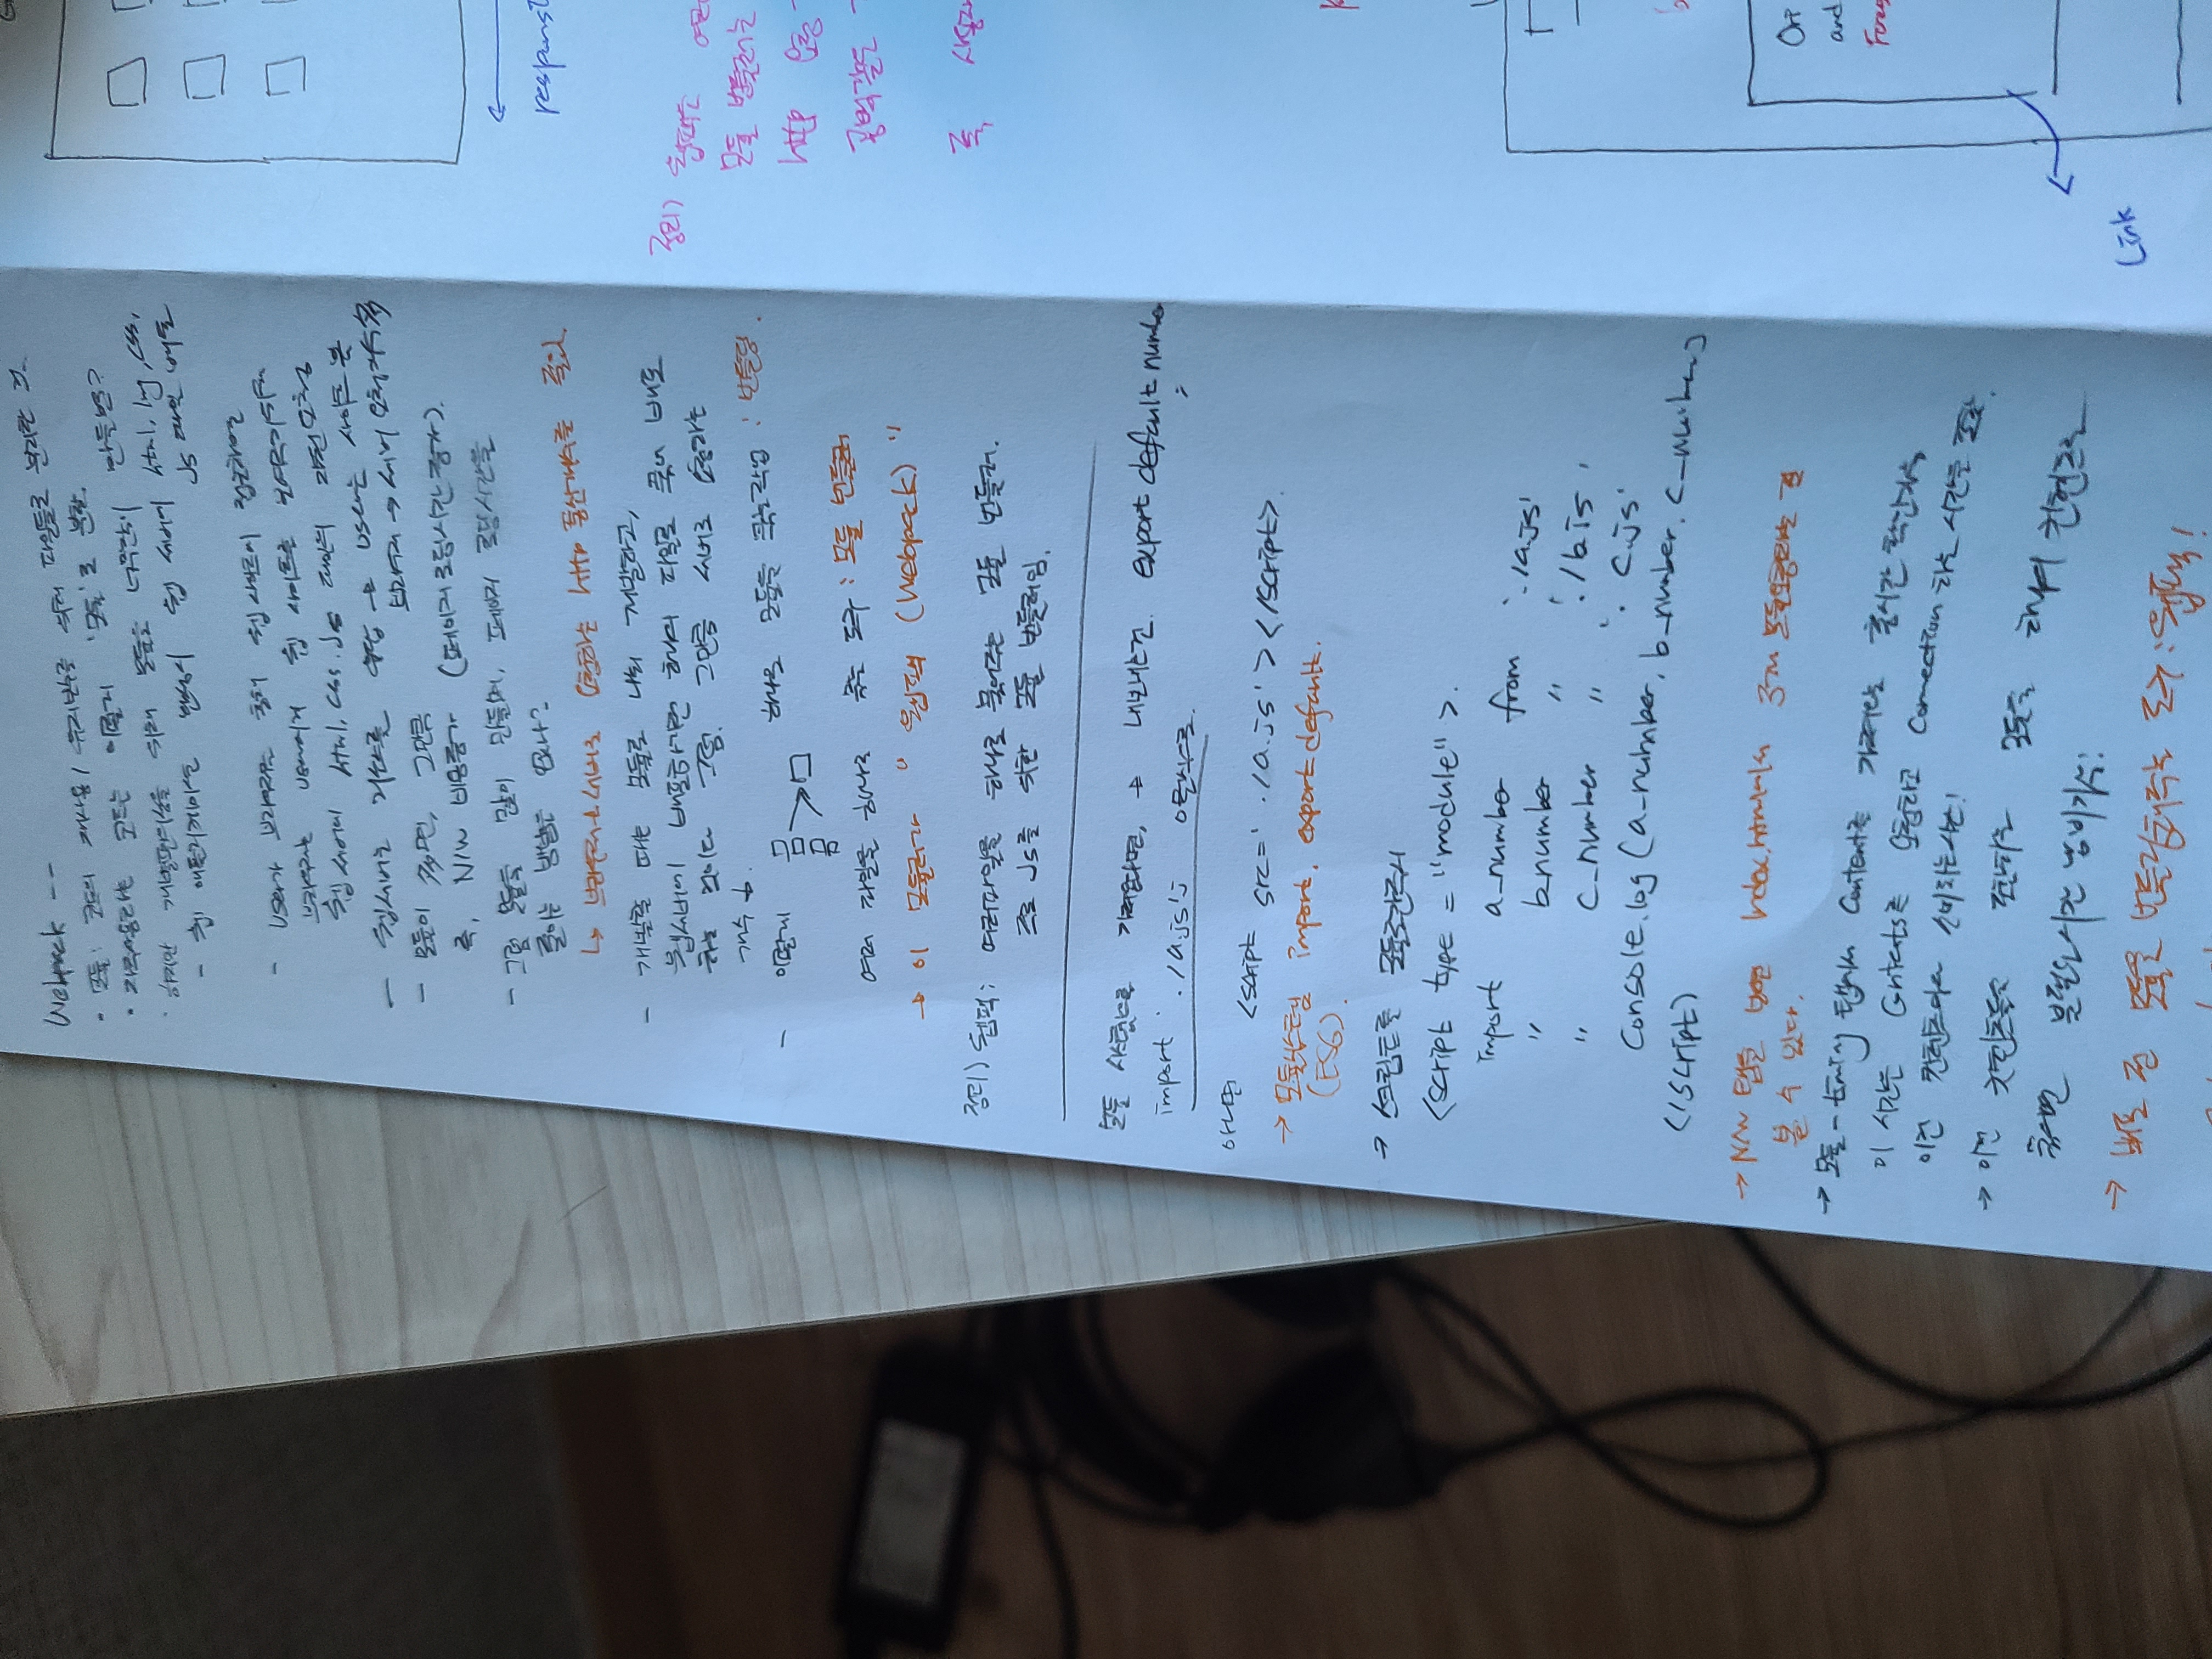 Webpack --
· 모듈: 코드의 재사용 / 유지보수를 위해 파일들로 분리한 것.
· 자주사용하는 코드는 이렇게 '모듈'로 분할.
· 하지만 개발편의성을 위해 모듈을 너무많이 만들면?
- 웹 애플리케이션 완성시 웹 서버에 html, img, css,
js 파일 배포
- user가 브라우저를 통해 웹 사이트에 접근하면
브라우저는 user에게 웹 사이트를 보여주기위해
웹 서버에 html, css, js 파일의 자원 요청
- 웹서버는 리소스를 응답 → user는 사이트 봄
- 모듈이 多면, 그만큼 브라우저 → 서버 요청개수多
즉, N/W 비용증가 (페이지 로딩시간 증가).
- 그럼 모듈을 많이 만들며, 페이지 로딩시간을
줄이는 방법은 없나?
↳ 브라우저→서버로 요청하는 http 통신개수를 줄임.
- 개발할 때는 모듈로 나눠 개발하고,
웹서버에 배포하기전 하나의 파일로 묶어 배포
하는 것이다 그럼, 그만큼 서버로 요청하는
개수 ↓.
- 이렇게 하나로 모듈을 묶는작업 : 번들링.
여러 파일을 하나로 묶는 도구 : 모듈 번들러
→ 이 모듈러가 " 웹팩 (Webpack) "
정리) 웹팩 : 여러파일을 하나로 묶어주는 모듈 번들러.
주로 js를 위한 모듈 번들러임.
모듈 시스템으로 가져온다면, → 내보내는건 export default number
;
import './a.js'; 이런식으로.
아니면 <script src='./a.js'></script>.
→ 모듈시스템 import, export default.
(ES6).
→ 스크립트를 모듈로간주시
<script type = "module">.
import a_number from './a.js'
" b_number " './b.js'
" c_number " '. c.js'
console.log (a_number, b_number, c_number)
</script>
→ N/W 탭을 보면 index.html에서 3개 모듈요청하는 걸
볼 수 있다.
→ 모듈 - timing 탭에서 Content를 가져오는 총시간 확인가능
이 시간은 Contents를 요청하고 Connection 하는 시간을 포함.
이건 컨텐츠마다 소비하는시간!
→ 이런 컨텐츠들을 모듈을 하나의 컨텐츠로
치면 불필요시간 낭비가능!
→ 배포 전 모듈을 번들링해주는 도구 : 웹팩!
response
정리) 웹팩은
모듈 번들러는
http 요청
공백같은
즉,
Ori
and
Link